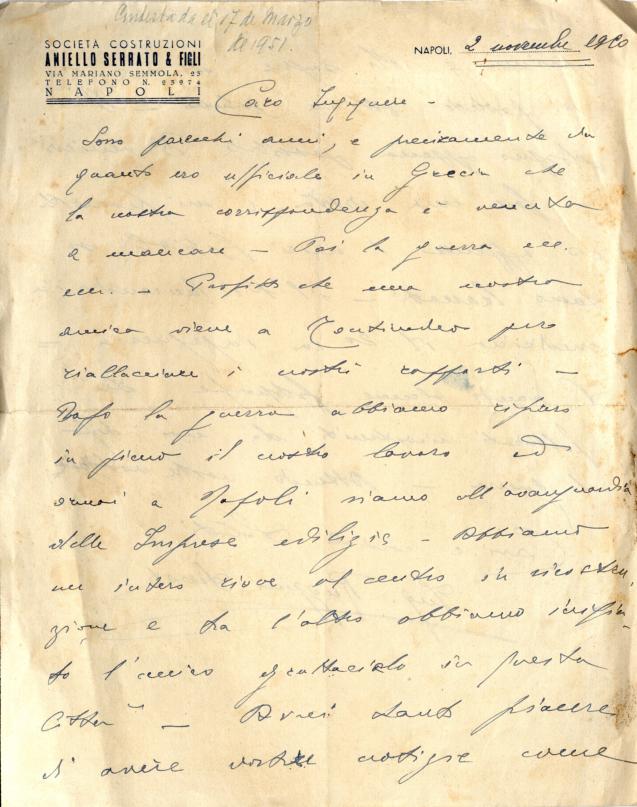 Contestada el 17 de Marzo
de 1951.
SOCIETÀ COSTRUZIONI
ANIELLO SERRATO & FIGLI
VIA MARIANO SEMMOLA, 23
TELEFONO N. 23974
NAPOLI
NAPOLI, 2 novembre 1950
Caro Ingegnere -
Sono parecchi anni, e precisamente da
quanto ero ufficiale in Grecia che
la nostra corrispondenza è venuta
a mancare - Poi la guerra ecc.
ecc. - Profitto che una nostra
amica viene a Montevideo per
riallacciare i nostri rapporti -
Dopo la guerra abbiamo ripreso
in pieno il nostro lavoro ed
ormai a Napoli siamo all'avanguardia
delle Imprese edilizie - Abbiamo
un intero rione al centro in ricostru
zione e tra l'altro abbiamo inizia
to l'unico grattacielo in questa
Città - Avrei tanto piacere
di avere vostre notizie come